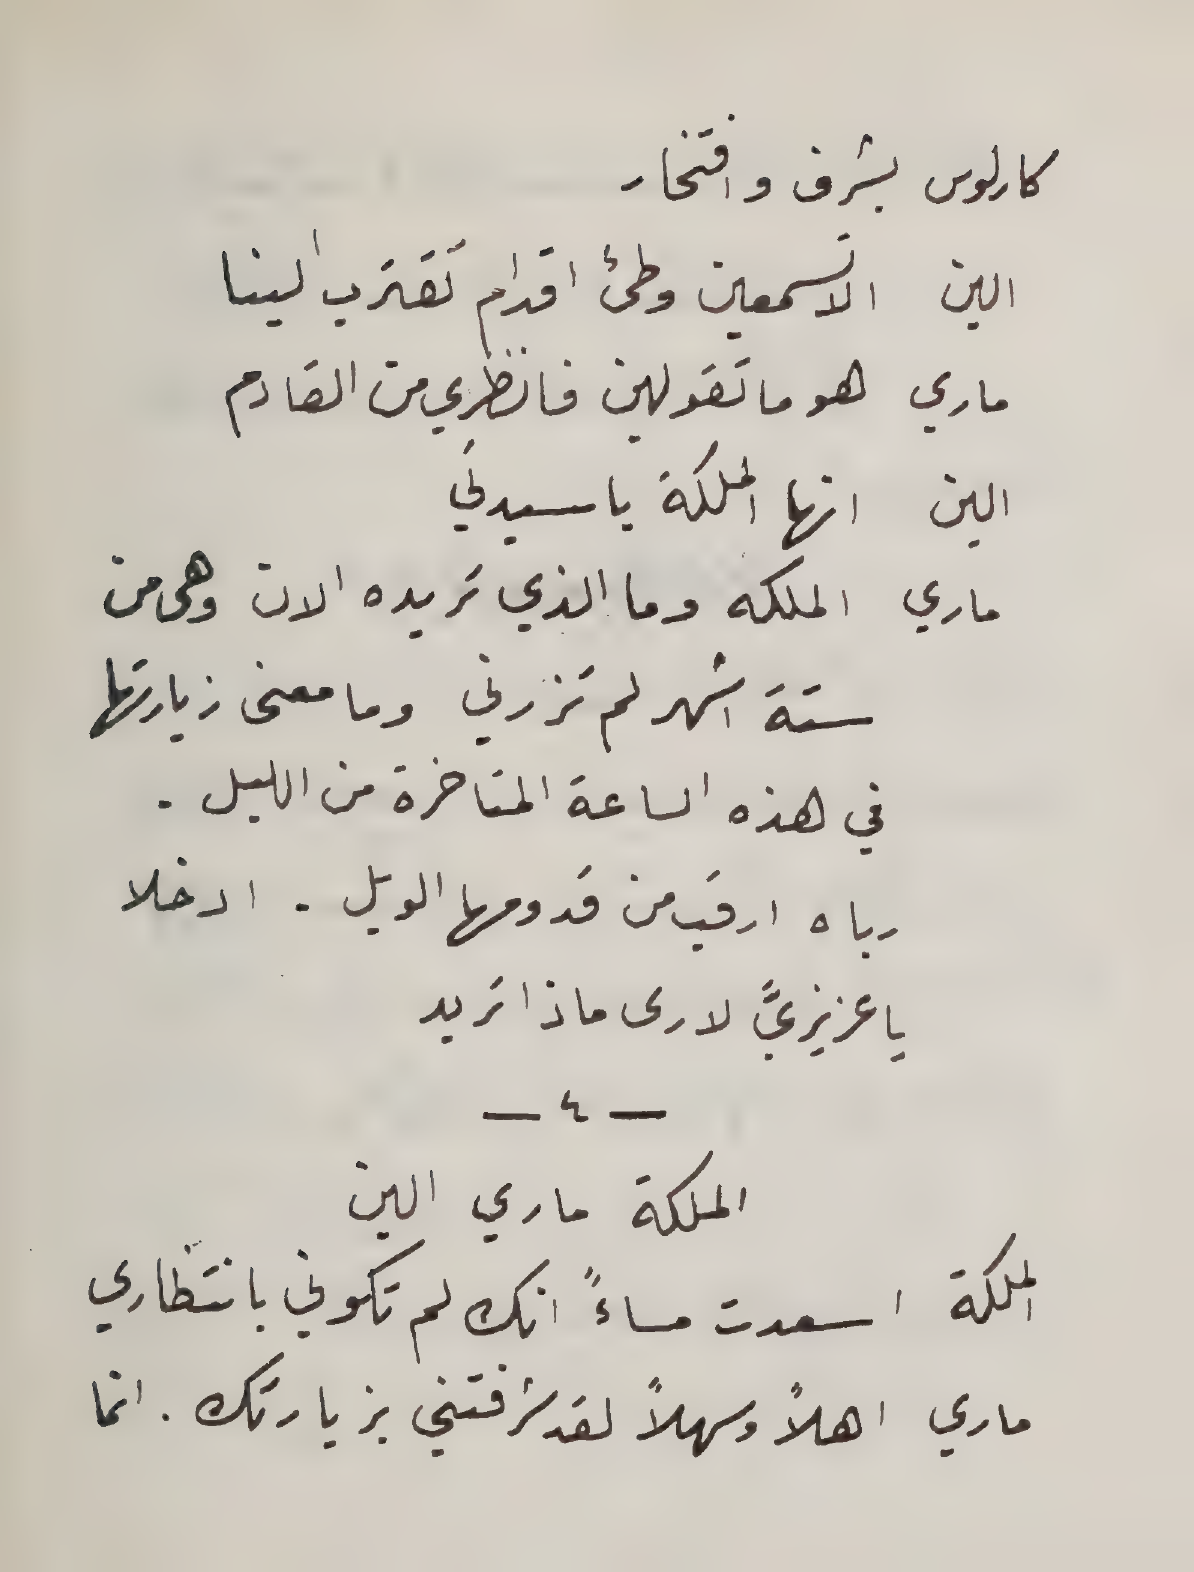 كارلوس بشرف وافتخار
الين الا تسمعين وطئ اقدام تقترب الينا
ماري هو ما تقولين فانظري من القادم
الين انها الملكة يا سيدتي
ماري الملكه وما الذي تريده الان وهي من
ستة اشهر لم تزرني وما معنى زيارتها
في هذه الساعة المتاخرة من الليل .
رباه ارقب من قدومها الويل . ادخلا
يا عزيزيَّ لارى ماذا تريد
— ٤ —
الملكة ماري الين
الملكة اسعدت مساءً انك لم تكوني بانتظاري
ماري اهلاً وسهلاً لقد شرفتني بزيارتك . انما